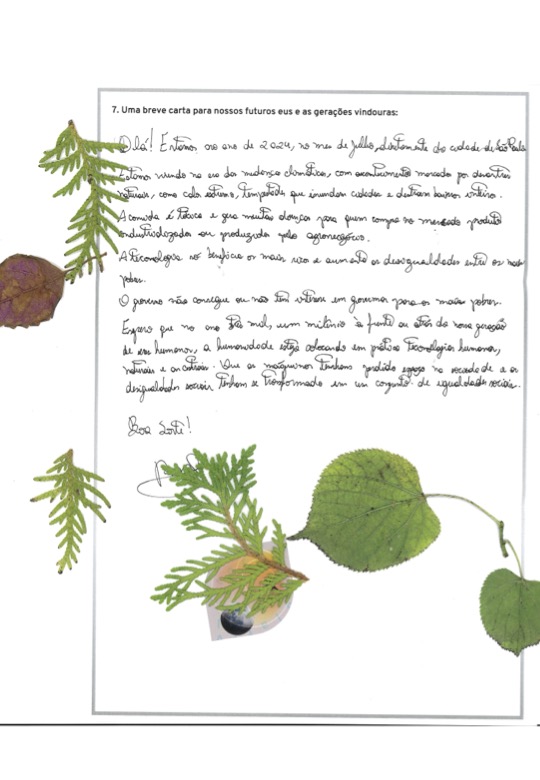 7. Uma breve carta para nossos futuros eus e as gerações vindouras:
Olá! Estamos no ano de 2024, no mes de Julho, diretamente da cidade de São Paulo
Estamos vivendo na era da mudança climática, com acontecimento marcado por desastres
naturais, como calor extremo, tempestades que inundam cidades e destroem bairros inteiros.
A comida é tóxica e gera muitas doenças para quem compra no mercado produto
industrializados ou produzidos pelo agronegócio.
A tecnologia só beneficia os mais ricos e aumenta as desigualdades entre os mais
pobres.
O governo não consegue ou não tem interesse em governar para os mais pobres.
Espero que no ano três mil, um milênio à frente ou atrás da nova geração
de seres humanos, a humanidade esteja colocando em prática tecnologias humanas,
naturais e ancestrais. Que as máquinas tenham perdido espaço na sociedade e as
desigualdades sociais tenham se transformado em um conjunto de igualdades sociais.
Boa Sorte!